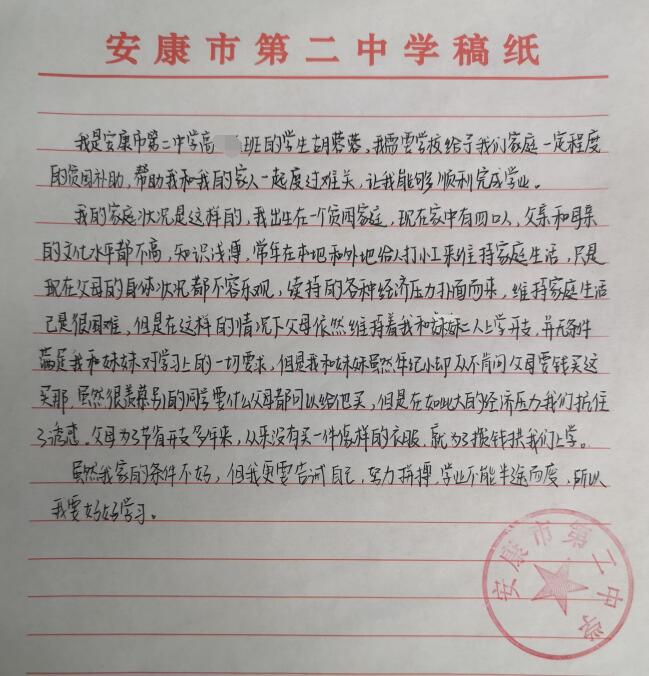 安康市第二中学稿纸
我是安康市第二中学高 班的学生胡蓉蓉,我需要学校给予我们家庭一定程度
的贫困补助,帮助我和我的家人一起度过难关,让我能够顺利完成学业。
我的家庭状况是这样的,我出生在一个贫困家庭,现在家中有四口人,父亲和母亲
的文化水平都不高,知识浅薄,常年在本地和外地给人打小工来维持家庭生活,只是
现在父母的身体状况都不容乐观,续持的各种经济压力扑面而来,维持家庭生活
已是很困难,但是在这样的情况下父母依然维持着我和妹妹二人上学开支,并无条件
满足我和妹妹对学习上的一切要求,但是我和妹妹虽然年纪小却从不肯问父母要钱买这
买那,虽然很羡慕别的同学要什么父母都可以给他买,但是在如此大的经济压力我们抵住
了诱惑,父母为了节省开支多年来,从来没有买一件像样的衣服,就为了攒钱拱我们上学。
虽然我家的条件不好,但我更要告诫自己,努力拼搏,学业不能半途而废,所以
我要好好学习。
安康市第二中学